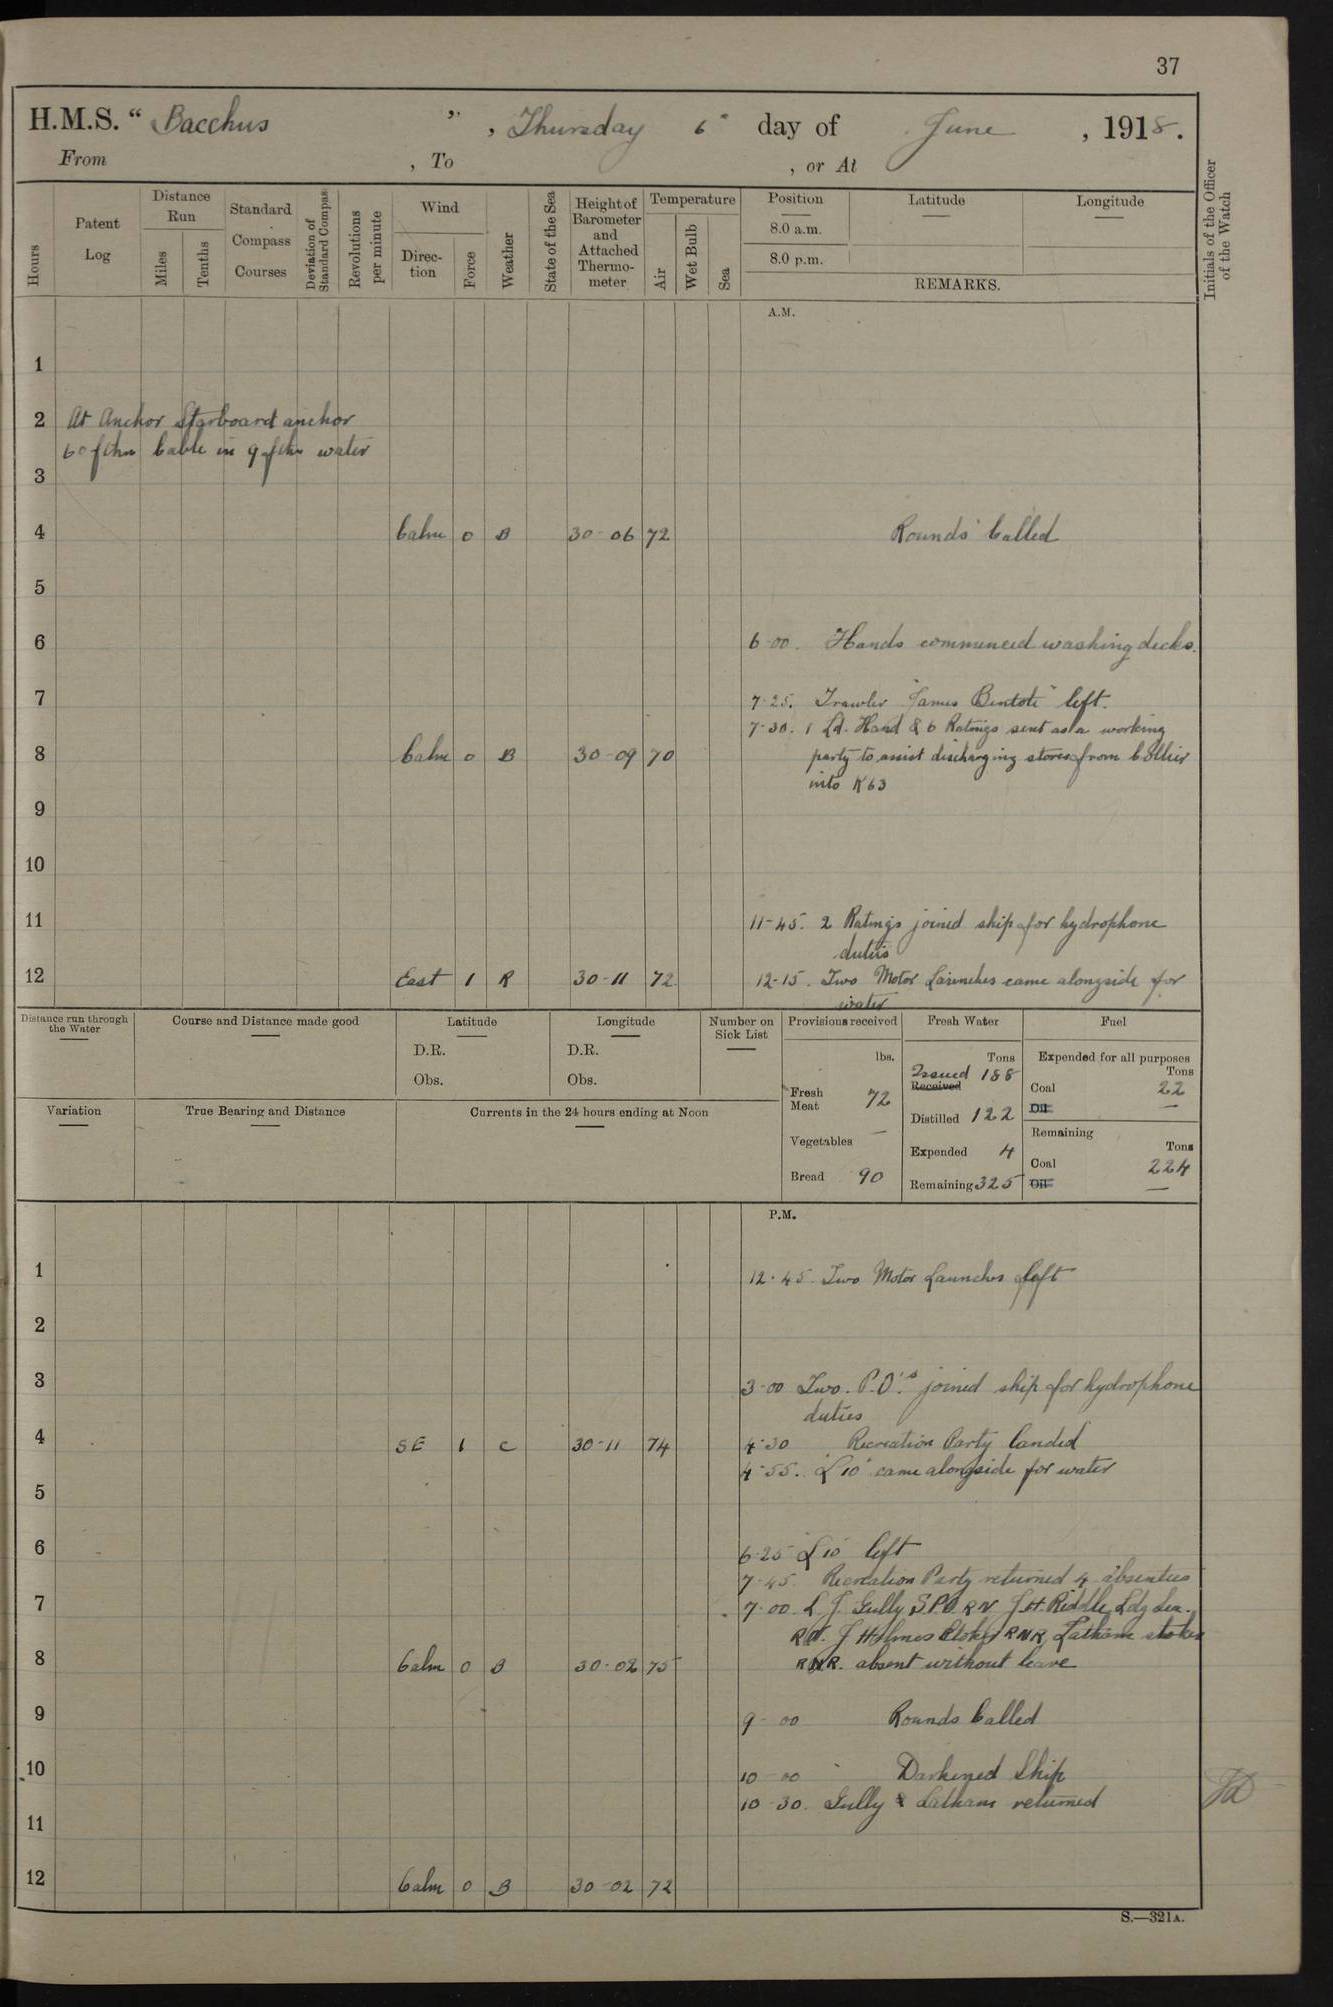 37
H.M.S. " Bacchus " , Thursday 6" day of June , 1918.
From , To , or At
Hours
Patent Log
Distance Run
Miles
Tenths
Standard Compass Courses
Deviation of Standard Compass
Revolutions per minute
Wind
Direction
Force
Weather
State of the Sea
Height of Barometer and Attached Thermometer
Temperature
Air
Wet Bulb
Sea
Position
8.0 a.m.
8.0 p.m.
Latitude
Longitude
REMARKS.
Initials of the Officer of the Watch
A.M.
1
2 At Anchor Starboard anchor
60 fthm Cable in 9 fthm water
3
4 Calm 0 B 30-06 72 Rounds Called
5
6 6-00. Hands commenced washing decks.
7 7-25. Trawler "James" left.
7-30. 1 Ld. Hand & 6 Ratings sent as a working
8 Calm 0 B 30-09 70 party to assist discharging stores from Collier
into K63
9
10
11 11-45. 2 Ratings joined ship for hydrophone
duties
12 East 1 R 30-11 72 12-15. Two Motor Launches came alongside for
water
Distance run through the Water
Course and Distance made good
Latitude
D.R.
Obs.
Longitude
D.R.
Obs.
Number on Sick List
Variation
True Bearing and Distance
Currents in the 24 hours ending at Noon
Provisions received
lbs.
Fresh Meat 72
Vegetables —
Bread 90
Fresh Water
Tons
Issued 188
Received
Distilled 122
Expended 4
Remaining 325
Fuel
Expended for all purposes
Tons
Coal 22
Oil —
Remaining
Tons
Coal 224
Oil —
P.M.
1 12.45. Two Motor Launches left
2
3 3-00 Two. P.O's. joined ship for hydrophone
duties
4 SE 1 C 30-11 74 4-30 Recreation Party landed
4-55. "L10" came alongside for water
5
6 6-25 L10 left
7-45. Recreation Party returned 4 absentees
7 7-00 L. J. Gully S.P.O. RN J.H. Riddle, Ldg Sea.
RN. J Holmes Stoker RNR, Latham stoker
8 Calm 0 B 30-02 75 RNR. absent without leave
9 9-00 Rounds Called
10 10-00 Darkened Ship
10-30. Gully & Latham returned
11
12 Calm 0 B 30-02 72
S.—321A.